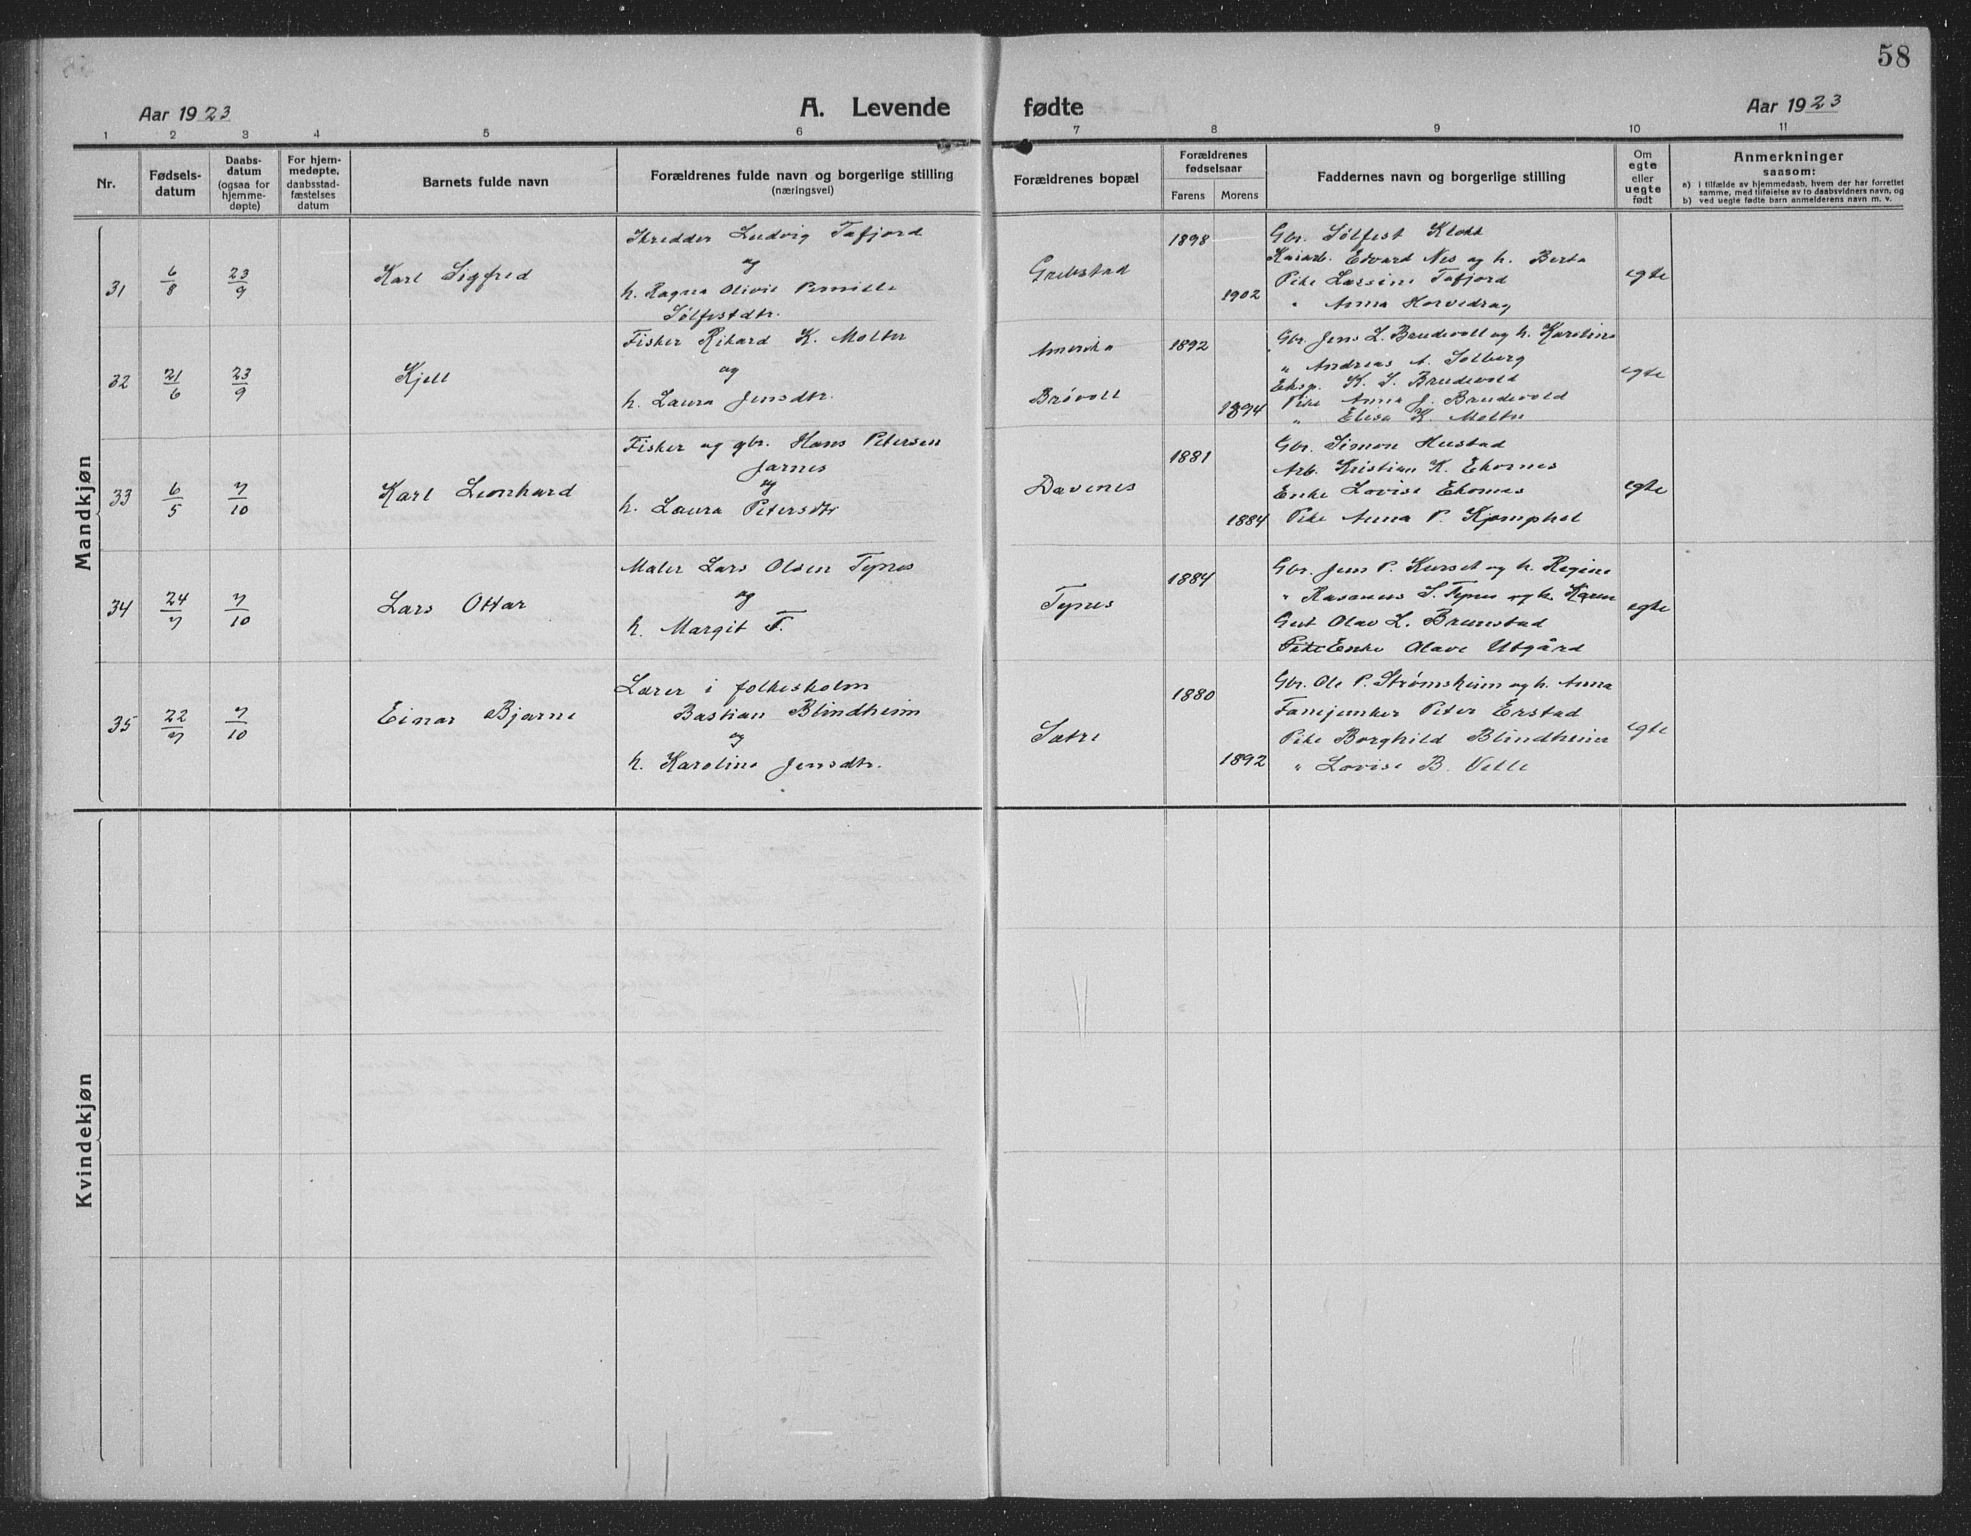 58
Aar 1923
A. Levende fødte
Aar 1923
1 2 3 4 5 6 7 8 9 10 11
Nr.
Fødsels-
datum
Daabs-
datum
(ogsaa for
hjemme-
døpte)
For hjem-
medøpte,
daabsstad-
fæstelses
datum
Barnets fulde navn
Forældrenes fulde navn og borgerlige stilling
(næringsvei)
Forældrenes bopæl
Forældrenes
fødselsaar
Farens Morens
Faddernes navn og borgerlige stilling
Om
egte
eller
uegte
født
Anmerkninger
saasom:
a) i tilfælde av hjemmedaab, hvem der har forrettet
samme, med tilføielse av to daabsvidners navn, og
b) ved uegte fødte barn anmelderens navn m. v.
Mandkjøn
31 6/8 23/9 Karl Sigfred
Skredder Ludvig Tafjord
og
h. Ragna Olivie Pernille
Sølfestdtr.
Grebstad
1898
1902
Gbr. Sølfest Klokk
Edvard Nes og h. Berta
Pike Lassine Tafjord
" Anna
egte
32 21/6 23/9 Kjell
Fisker Rikard K. Molter
og
h. Laura Jensdtr.
Amerika
Brøvoll
1892
1894
Gbr. Jens L. Brudevoll og h. Karoline
" Andreas A. Solberg
Eksp. K. J. Brudevold
Pike Anna J. Brudevold
" Elisa K. Molter
egte
33 6/5 7/10 Karl Leonhard
Fisker og gbr. Hans Petersen
Jarnes
og
h. Laura Petersdtr
Davenes
1881
1884
Gbr. Simon Hustad
Arb. Kristian K. Ekornes
Enke Lovise Ekornes
Pike Anna P. Kjemphol
egte
34 24/7 7/10 Lars Ottar
Maler Lars Olsen Tynes
og
h. Margit T.
Tynes
1884
Gbr. Jens P. Kurset og h. Regine
" Rasmus S. Tynes og h. Karen
Gut Olav L. Brunstad
Pike Enke Olave Utgård
egte
35 22/7 7/10 Einar Bjarne
Lærer i folkeskolen
Bastian Blindheim
og
h. Karoline Jensdtr.
Sætre
1880
1892
Gbr. Ole P. Strømsheim og h. Anna
Fanejunker Peter Erstad
Pike Borghild Blindheim
" Lovise B. Velle
egte
Kvindekjøn